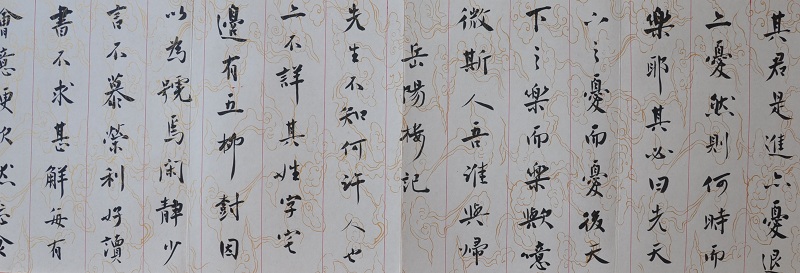 其君是進亦憂退
亦憂然則何時而
樂耶其必曰先天
下之憂而憂後天
下之樂而樂歟噫
微斯人吾誰與歸
岳陽樓記
先生不知何許人也
亦不詳其姓字宅
邊有五柳樹因
以為號焉閑靜少
言不慕榮利好讀
書不求甚解每有
會意便欣然忘食